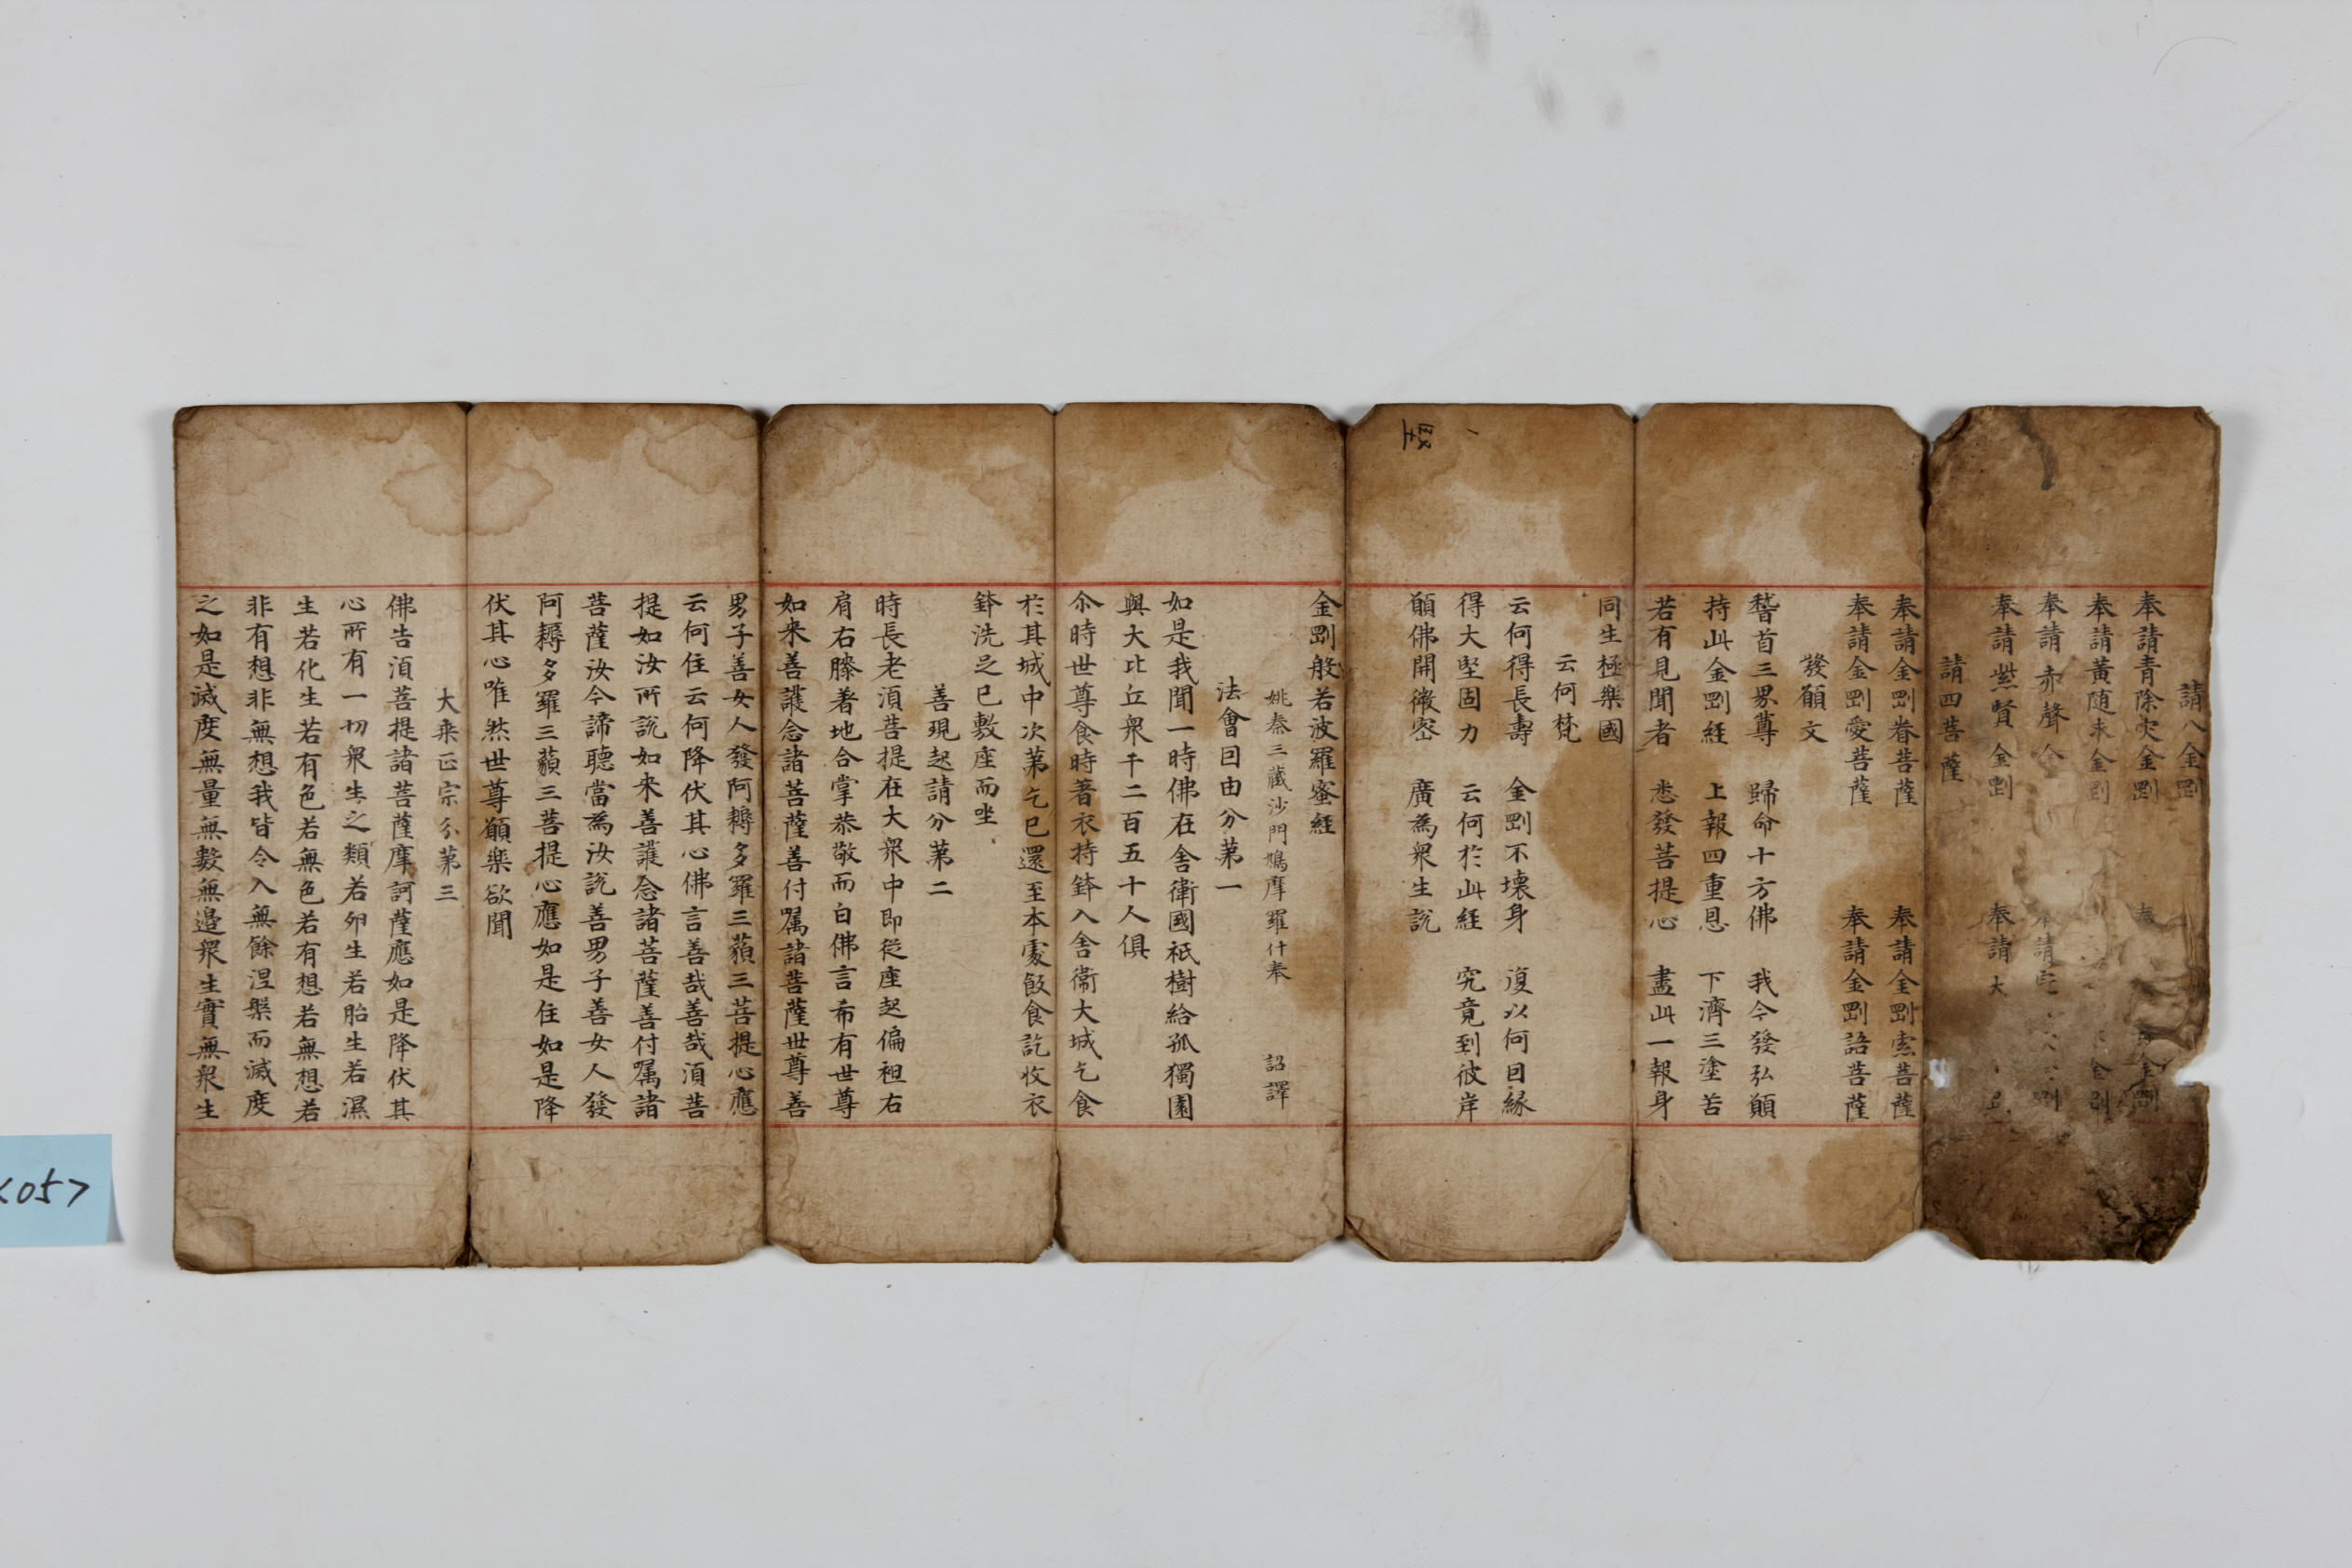 請八金剛
奉請青除灾金剛 奉 金剛
奉請黃随求金剛 金剛
奉請赤聲金 請 剛
奉請紫賢金剛 奉請大
請四菩薩
奉請金剛眷菩薩 奉請金剛索菩薩
奉請金剛愛菩薩 奉請金剛語菩薩
發願文
稽首三界尊 歸命十方佛 我今發弘願
持此金剛経 上報四重恩 下濟三塗苦
若有見聞者 悉發菩提心 盡此一報身
同生極樂國
云何梵
云何得長壽 金剛不壊身 復以何因縁
得大堅固力 云何扵此経 究竟到彼岸
願佛開微宻 廣為衆生說
金剛般若波羅蜜経
姚秦三藏沙門鳩摩羅什奉 詔譯
法會因由分第一
如是我聞一時佛在舎衛國祇樹給孤獨園
與大比丘衆千二百五十人俱
尒時世尊食時著衣持鉢入舎衛大城乞食
扵其城中次第乞已還至本處飯食訖收衣
鉢洗足已敷座而坐
善現起請分第二
時長老湏菩提在大衆中即從座起偏袒右
肩右膝著地合掌恭敬而白佛言希有世尊
如来善護念諸菩薩善付嘱諸菩薩世尊善
男子善女人發阿耨多羅三藐三菩提心應
云何住云何降伏其心佛言善哉善哉湏菩
提如汝所說如来善護念諸菩薩善付嘱諸
菩薩汝今諦聽當為汝説善男子善女人發
阿耨多羅三藐三菩提心應如是住如是降
伏其心唯然世尊願樂欲聞
大乗正宗分第三
佛告湏菩提諸菩薩摩訶薩應如是降伏其
心所有一切衆生之類若卵生若胎生若濕
生若化生若有色若無色若有想若無想若
非有想非無想我皆令入無餘涅槃而滅度
之如是滅度無量無數無邉衆生實無衆生
<057